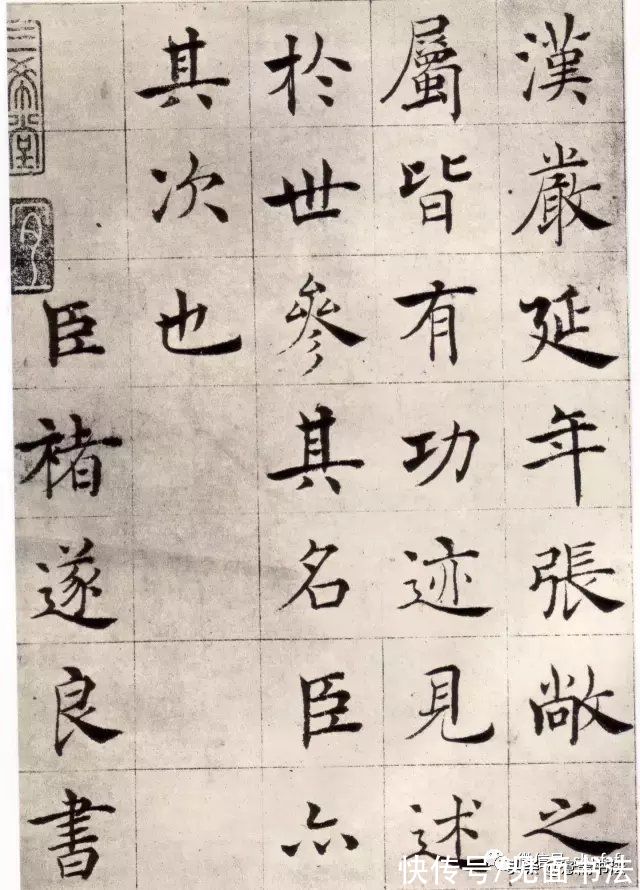 漢嚴延年張敞之
屬皆有功迹見述
於世參其名臣亦
其次也
臣褚遂良書
三希堂
快传号/见面书法